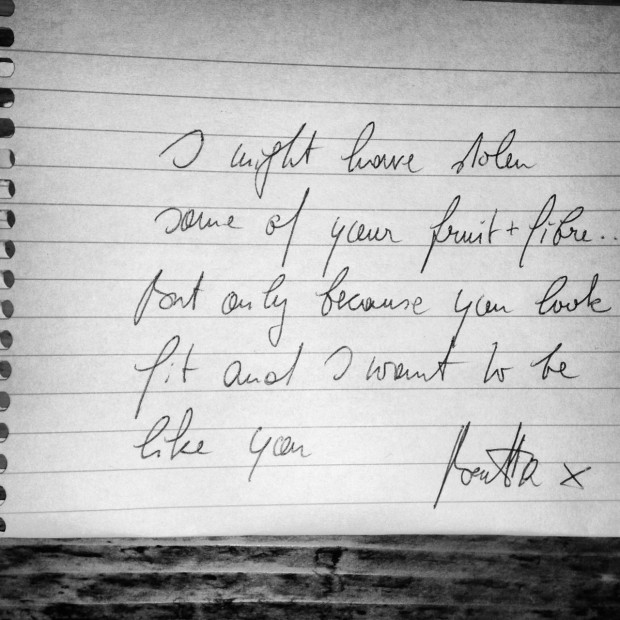 I might have stolen
some of your fruit + fibre..
But only because you look
fit and I want to be
like you
x